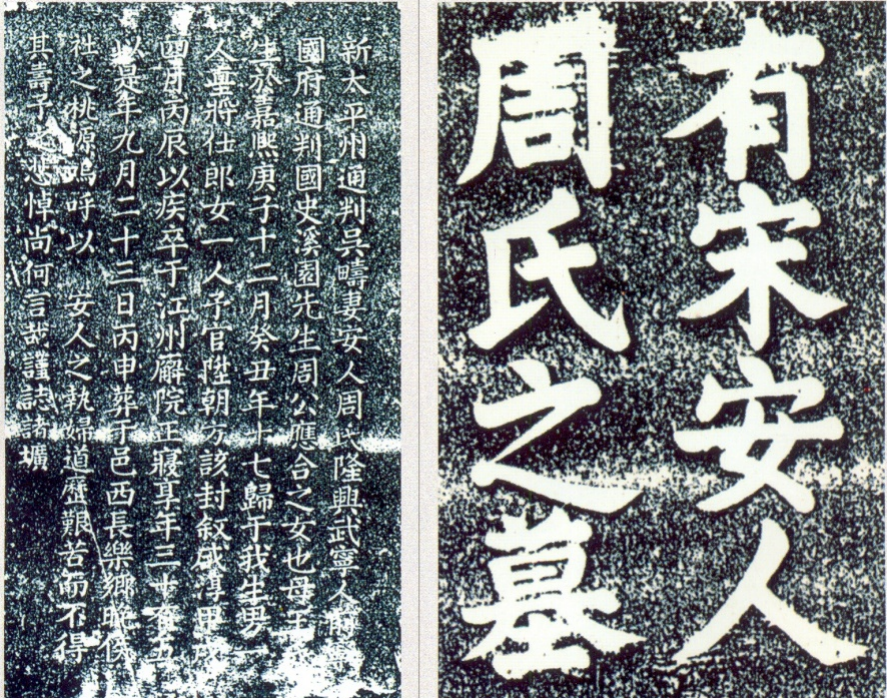 有宋安人
周氏之墓
新太平州通判吳疇妻安人周氏隆興武寧人前寧
國府通判國史溪園先生周公應合之女也母王氏
生於嘉熙庚子十二月癸丑年十七歸于我生男一
人壹將仕郎女一人予官陞朝方該封叙咸淳甲戌
四月丙辰以疾卒于江州廨院正寢享年三十有五
以是年九月二十三日丙申葬于邑西長樂鄉
社之桃源嗚呼以 安人之執婦道歷艱苦而不得
其壽予之悲悼尚何言哉謹誌諸壙